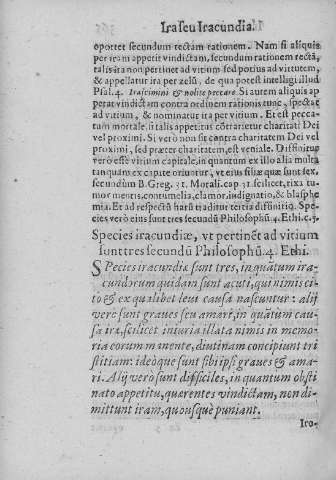 Ira seu Iracundia.
oportet secundum rectam rationem. Nam si aliquis
per iram appetit vindictam, secundum rationem rectã,
talis ira non pertinet ad vitium sed potius ad virtutem,
& appellatur ira per zelũ, de qua potest intelligi illud
Psal. 4. Irascimini & nolite peccare. Si autem aliquis ap
petat vindictam contra ordinem rationis tunc, spectat
ad vitium, & nominatur ira per vitium. Et est pecca-
tum mortale, si talis appetitus cõtrarietur charitati Dei
vel proximi. Si vero non sit contra charitatem Dei vel
proximi, sed præter charitatem, est veniale. Diffinitur
vero esse vitium capitale, in quantum ex illo alia multa
tanquam ex capite oriuntur, vt eius filiæ quæ sunt sex,
secundũm B. Greg. 31. Morali. cap 31. scilicet, rixa tu-
mor mentis, contumelia, clamor, indignatio, & blasphe
mia. Et ad respectũ harũ traditur tertia diffinitio. Spe
cies verò eius sunt tres secundũ Philosophũ 4. Ethi. c. 5.
Species iracundiæ, vt pertinẽt ad vitium
sunt tres secundũ Philosophũ. 4. Ethi.
SPecies iracundiæ sunt tres, in quãtum ira-
cundorum quidam sunt acuti, qui nimis ci-
to & ex qualibet leui causa nascuntur: alij
verè sunt graues seu amari, in quãtum cau-
sa ira, scilicet iniuria illata nimis in memo-
ria eorum manente, diutinam concipiunt tri
stitiam: ideoque sunt sibi ipsi graues & ama-
ri. Alij verò sunt difficiles, in quantum obsti
nato appetitu, querentes vindictam, non di-
mittunt iram, quousque puniant.
Iro-